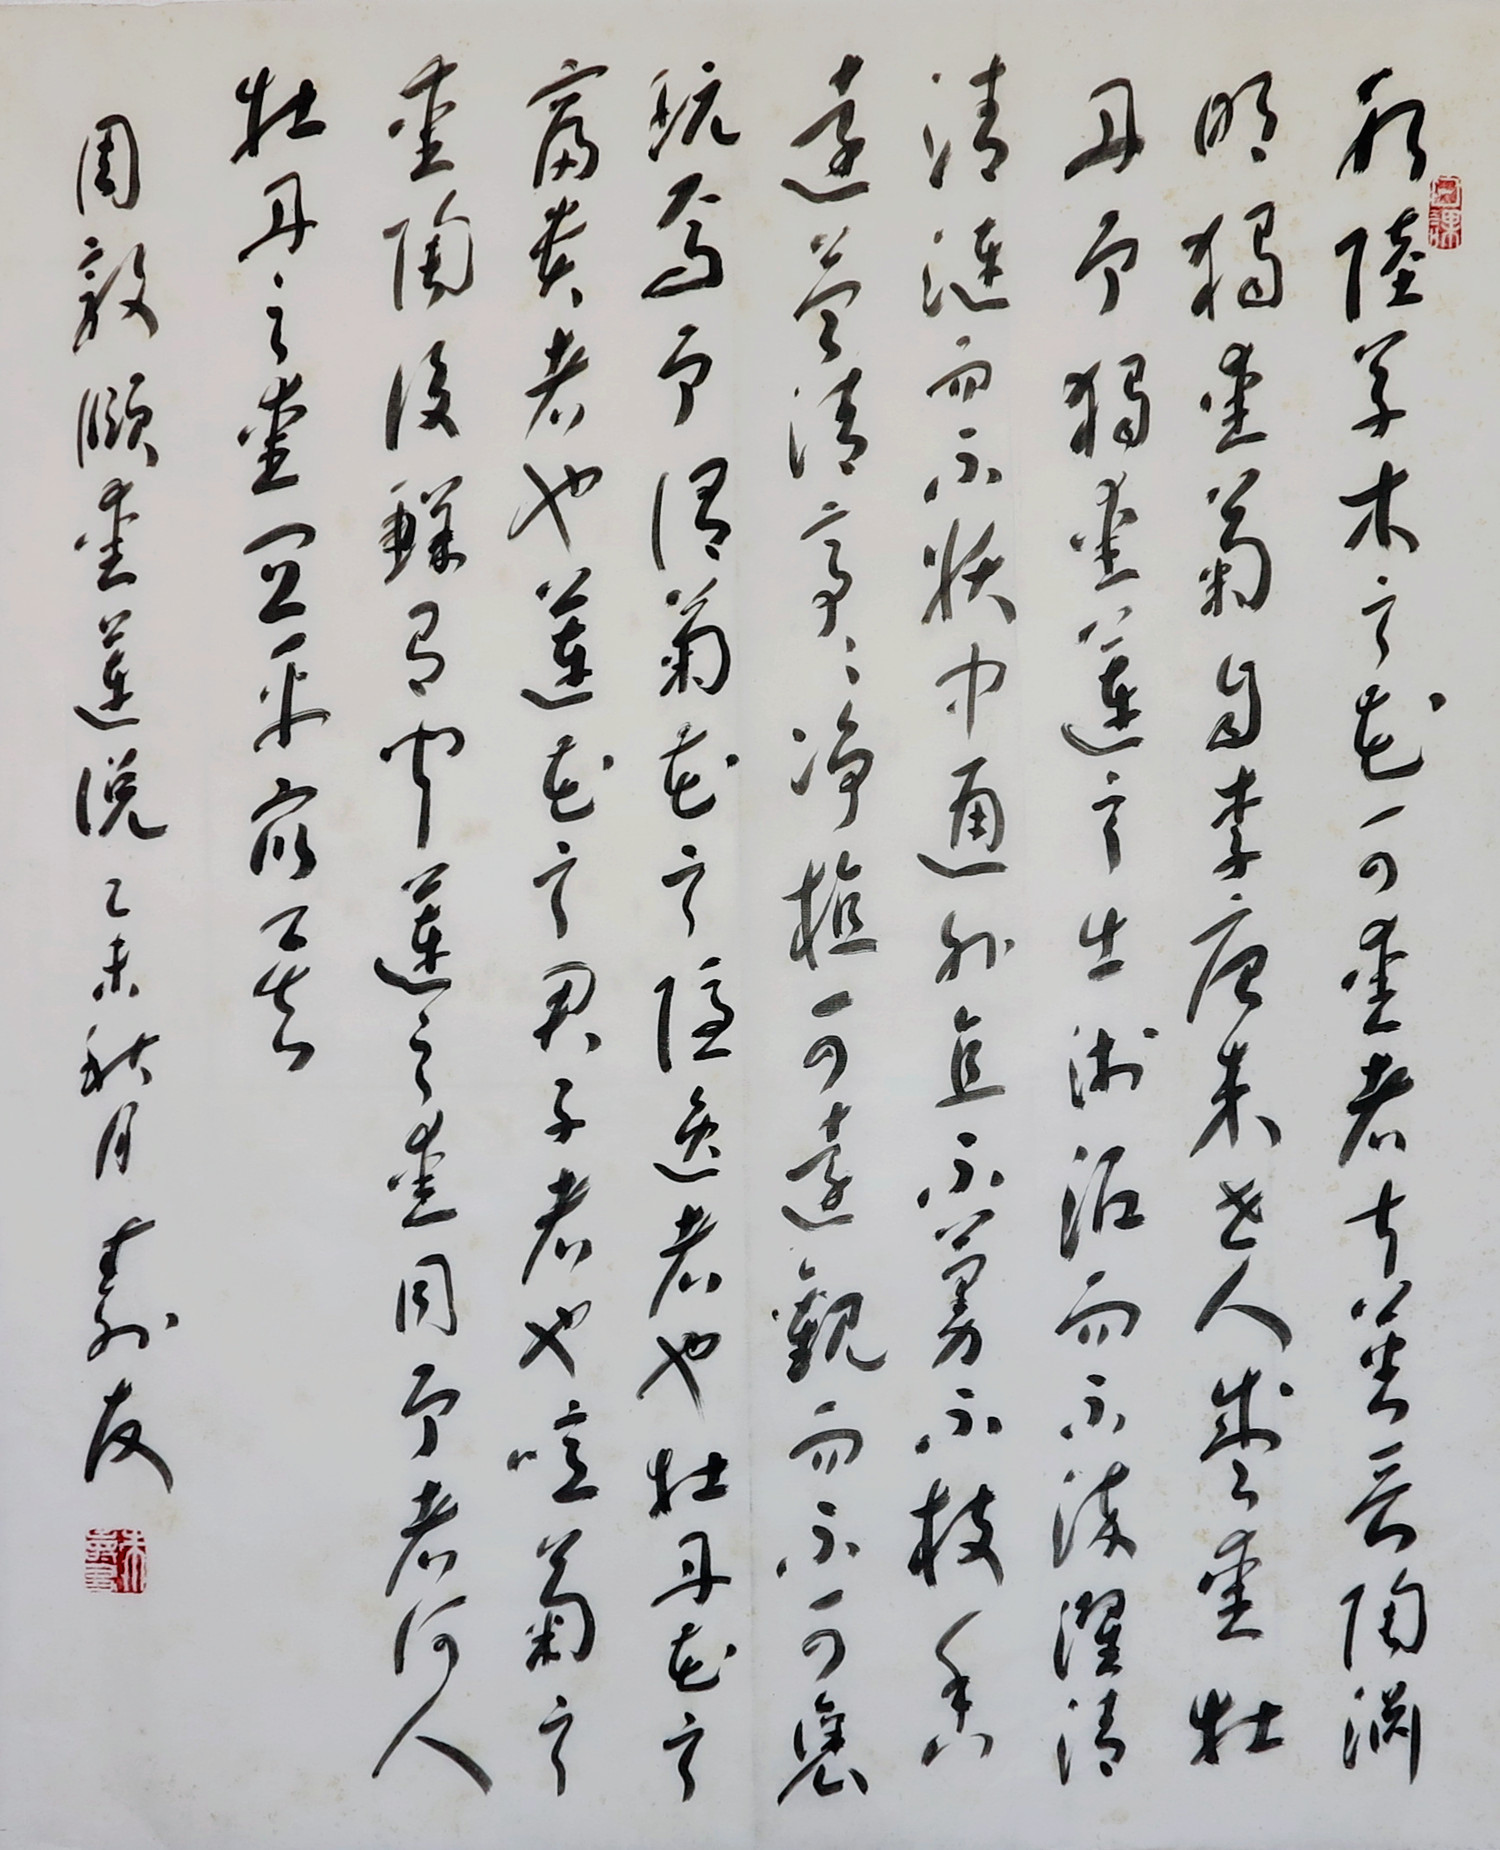 水陸草木之花可愛者甚蕃晉陶淵
明獨愛菊自李唐來世人盛愛牡
丹予獨愛蓮之出淤泥而不染濯清
清漣而不妖中通外直不蔓不枝香
遠益清亭〻淨植可遠觀而不可褻
翫焉予謂菊花之隱逸者也牡丹花之
富貴者也蓮花之君子者也噫菊之
愛陶後鮮有聞蓮之愛同予者何人
牡丹之愛宜乎衆矣
周敦頤愛蓮說乙未秋月壽友